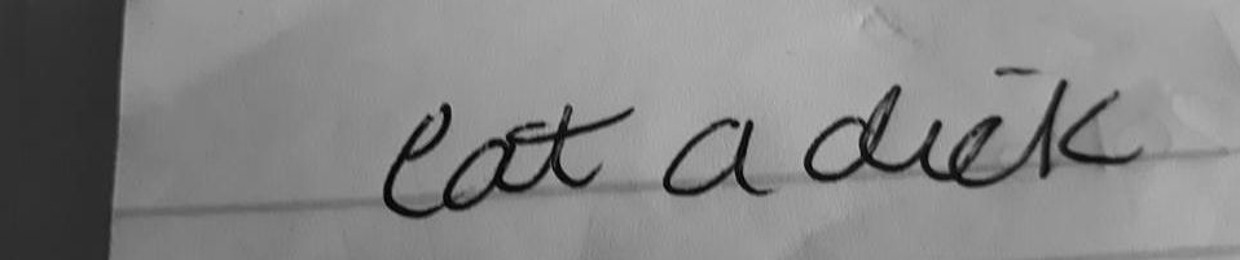 eat a dick